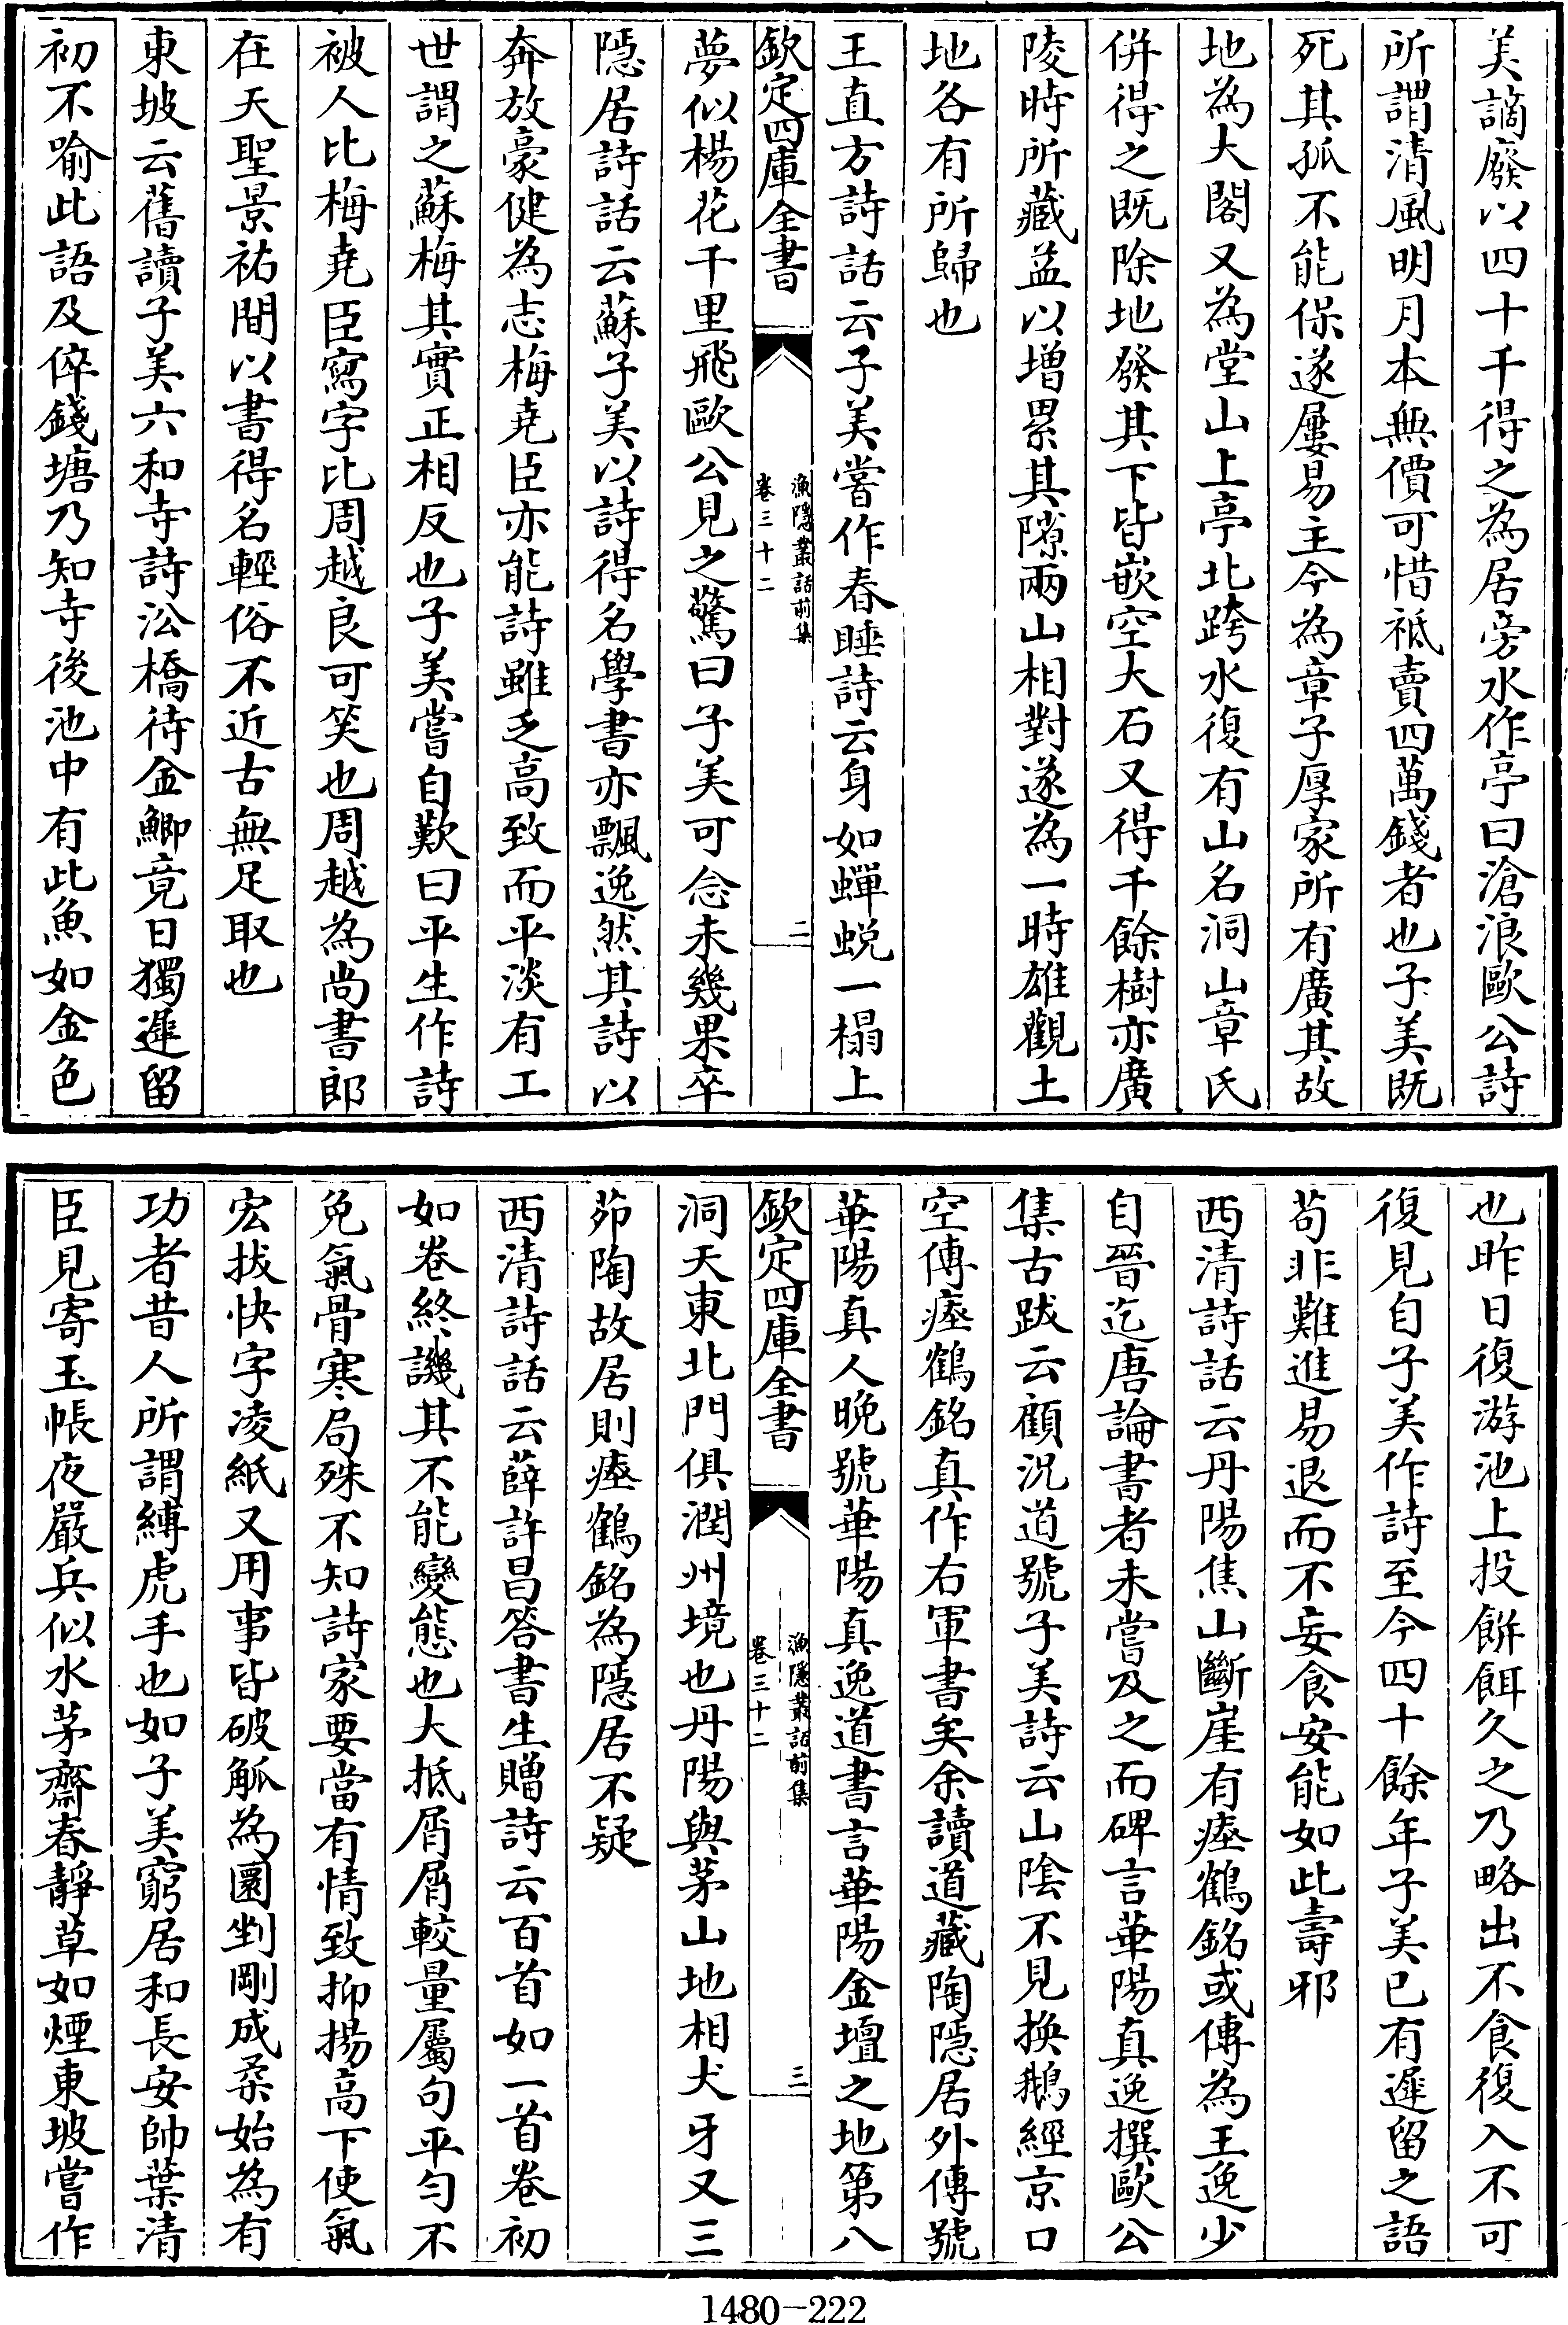 美謫廢以四十千得之為居旁水作亭曰滄浪歐公詩
所謂清風明月本無價可惜祗賣四萬錢者也子美既
死其孤不能保遂屢易主今為章子厚家所有廣其故
地為大閣又為堂山上亭北跨水復有山名洞山章氏
併得之既除地發其下皆嵌空大石又得千餘樹亦廣
陵時所藏益以增累其隙兩山相對遂為一時雄觀土
地各有所歸也
王直方詩話云子美嘗作春睡詩云身如蟬蛻一榻上
欽定四庫全書
漁隱叢話前集
卷三十二
二
夢似楊花千里飛歐公見之驚曰子美可念未幾果卒
隱居詩話云蘇子美以詩得名學書亦飄逸然其詩以
奔放豪健為志梅堯臣亦能詩雖乏高致而平淡有工
世謂之蘇梅其實正相反也子美嘗自歎曰平生作詩
被人比梅堯臣寫字比周越良可笑也周越為尚書郎
在天聖景祐間以書得名輕俗不近古無足取也
東坡云舊讀子美六和寺詩沿橋待金鯽竟日獨遲留
初不喻此語及倅錢塘乃知寺後池中有此魚如金色
也昨日復游池上投餅餌久之乃略出不食復入不可
復見自子美作詩至今四十餘年子美已有遲留之語
苟非難進易退而不妄食安能如此壽邪
西清詩話云丹陽焦山斷崖有瘞鶴銘或傳為王逸少
自晉迄唐論書者未嘗及之而碑言華陽真逸撰歐公
集古跋云顧況道號子美詩云山陰不見換鵝經京口
空傳瘞鶴銘真作右軍書矣余讀道藏陶隱居外傳號
華陽真人晚號華陽真逸道書言華陽金壇之地第八
欽定四庫全書
漁隱叢話前集
卷三十二
三
洞天東北門俱潤州境也丹陽與茅山地相犬牙又三
茆陶故居則瘞鶴銘為隱居不疑
西清詩話云薛許昌答書生贈詩云百首如一首卷初
如卷終譏其不能變態也大抵屑屑較量屬句平勻不
免氣骨寒局殊不知詩家要當有情致抑揚高下使氣
宏拔快字凌紙又用事皆破觚為圜剉剛成柔始為有
功者昔人所謂縛虎手也如子美窮居和長安帥葉清
臣見寄玉帳夜嚴兵似水茅齋春靜草如煙東坡嘗作
1480-222